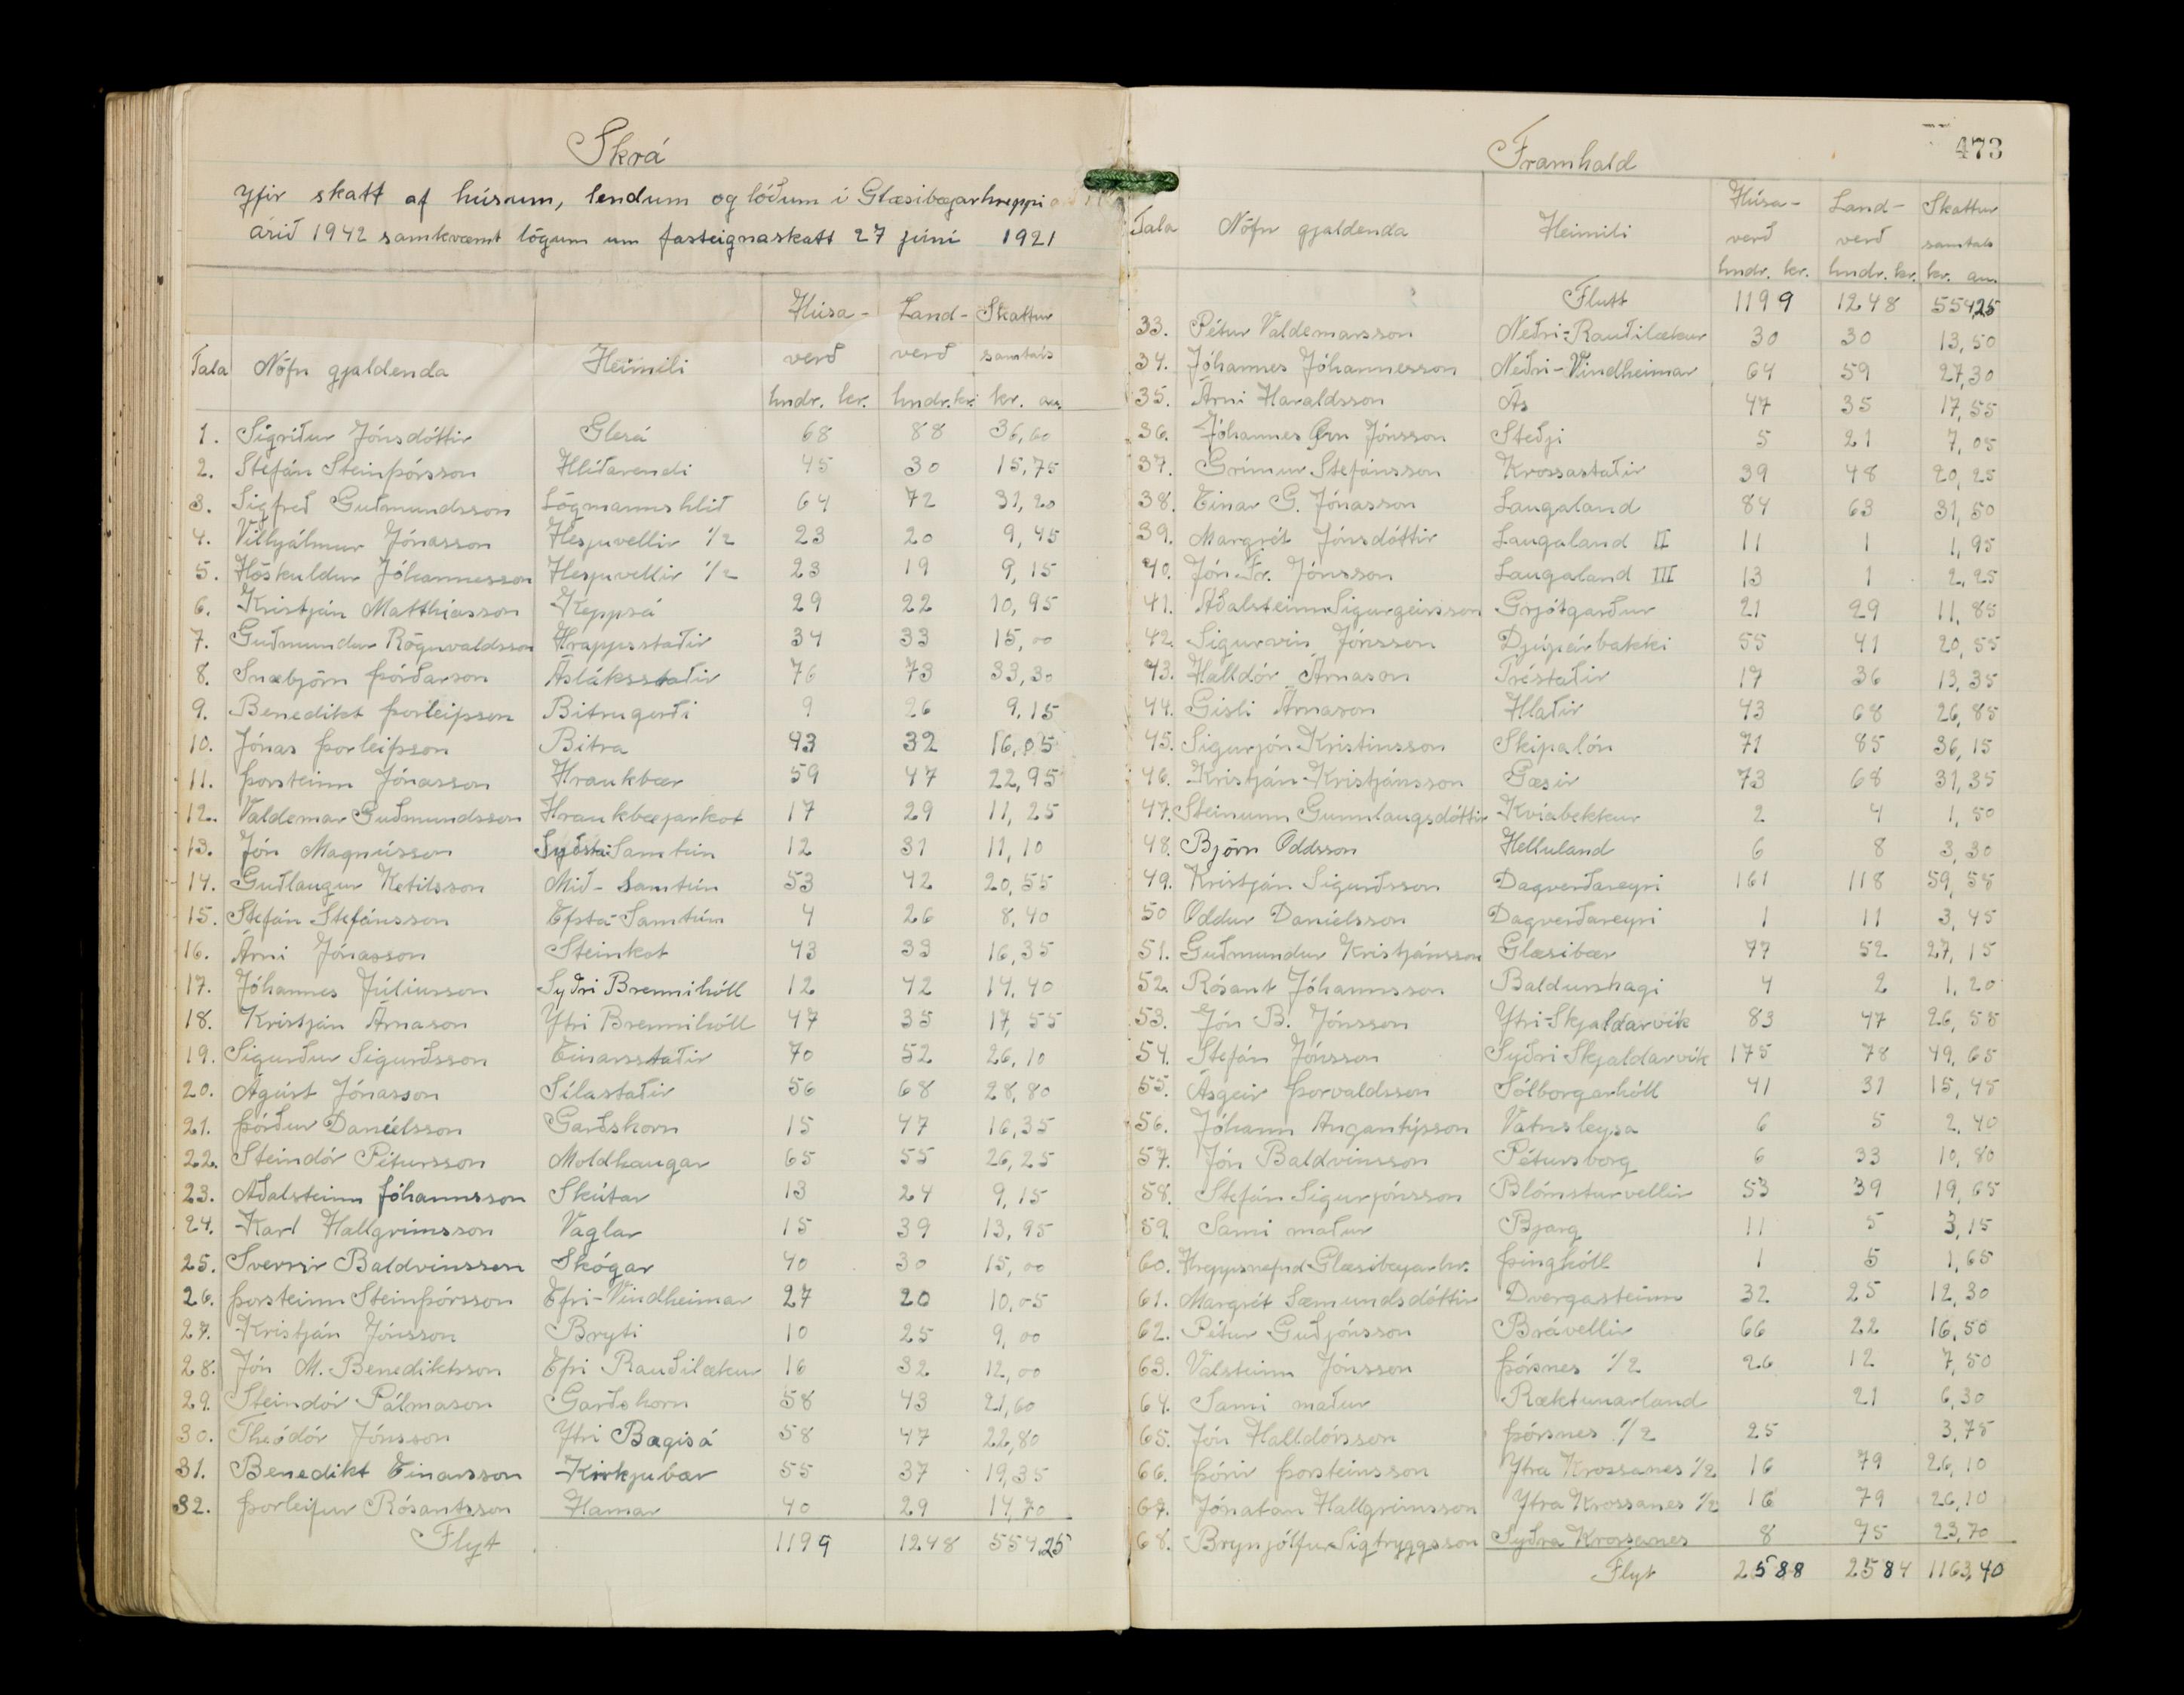 Skrá
Yfir skatt af húsum, lendum og lóðum í Glæsibæjarhreppi
árið 1942 samkvæmt lögum um fasteignaskatt 27 júní 1921
Húsa- Land- Skattur
Tala Nöfn gjaldenda Heimili verð verð samtals
hndr. kr. hndr. kr. kr. au.
1. Sigríður Jónsdóttir Glerá 68 88 36,60
2. Stefán Steinþórsson Hlíðarendi 45 30 15,75
3. Sigfreð Guðmundsson Lögmannshlíð 64 72 31,20
4. Vilhjálmur Jónasson Hesjuvellir 1/2 23 20 9,45
5. Höskuldur Jóhannesson Hesjuvellir 1/2 23 19 9,15
6. Kristján Matthíasson Keppsá 29 22 10,95
7. Guðmundur Rögnvaldsson Hrappsstaðir 34 33 15,00
8. Snæbjörn Þórðarson Ásláksstaðir 76 73 33,30
9. Benedikt Þorleifsson Bitrugerði 9 26 9,15
10. Jónas Þorleifsson Bitra 43 32 16,05
11. Þorsteinn Jónasson Hraukbær 59 47 22,95
12. Valdemar Guðmundsson Hraukbæjarkot 17 29 11,25
13. Jón Magnússon Syðsta-Samtún 12 31 11,10
14. Guðlaugur Ketilsson Mið-Samtún 53 42 20,55
15. Stefán Stefánsson Efsta-Samtún 4 26 8,40
16. Árni Jónasson Steinkot 43 33 16,35
17. Jóhannes Júlíusson Syðri Brennihóll 12 42 14,40
18. Kristján Árnason Ytri Brennihóll 47 35 17,55
19. Sigurður Sigurðsson Einarsstaðir 70 52 26,10
20. Ágúst Jónasson Sílastaðir 56 68 28,80
21. Þórður Daníelsson Garðshorn 15 47 16,35
22. Steindór Pétursson Moldhaugar 65 55 26,25
23. Aðalsteinn Jóhannsson Skútar 13 24 9,15
24. Karl Hallgrímsson Vaglar 15 39 13,95
25. Sverrir Baldvinsson Skógar 40 30 15,00
26. Þorsteinn Steinþórsson Efri-Vindheimar 27 20 10,05
27. Kristján Jónsson Bryti 10 25 9,00
28. Jón M. Benediktsson Efri Rauðilækur 16 32 12,00
29. Steindór Pálmason Garðshorn 58 43 21,60
30. Theódór Jónsson Ytri Bægisá 58 47 22,80
31. Benedikt Einarsson Kirkjubær 55 37 19,35
32. Þorleifur Rósantsson Hamar 40 29 14,70
Flyt 1199 1248 554,25
473
Framhald
Húsa- Land- Skattur
Tala Nöfn gjaldenda Heimili verð verð samtals
hndr. kr. hndr. kr. kr. au
Flutt 1199 1248 554,25
33. Pétur Valdemarsson Neðri-Rauðilækur 30 30 13,50
34. Jóhannes Jóhannesson Neðri-Vindheimar 64 59 27,30
35. Árni Haraldsson Ás 47 35 17,55
36. Jóhannes Örn Jónsson Steðji 5 21 7,05
37. Grímur Stefánsson Krossastaðir 39 48 20,25
38. Einar G. Jónasson Laugaland 84 63 31,50
39. Margrét Jónsdóttir Laugaland II 11 1 1,95
40. Jón Fr. Jónsson Laugaland III 13 1 2,25
41. Aðalsteinn Sigurgeirsson Grjótgarður 21 29 11,85
42. Sigurvin Jónsson Djúpárbakki 55 41 20,55
43. Halldór Árnason Tréstaðir 17 36 13,35
44. Gísli Árnason Hlaðir 43 68 26,85
45. Sigurjón Kristinsson Skipalón 71 85 36,15
46. Kristján Kristjánsson Gæsir 73 68 31,35
47. Steinunn Gunnlaugsdóttir Kvíabekkur 2 4 1,50
48. Björn Oddsson Helluland 6 8 3,30
49. Kristján Sigurðsson Dagverðareyri 161 118 59,58
50 Oddur Daníelsson Dagverðareyri 1 11 3,45
51. Guðmundur Kristjánsson Glæsibær 77 52 27,15
52. Rósant Jóhannsson Baldurshagi 4 2 1,20
53. Jón B. Jónsson Ytri-Skjaldarvík 83 47 26,55
54. Stefán Jónsson Syðri Skjaldarvík 175 78 49,65
55. Ásgeir Þorvaldsson Sólborgarhóll 41 31 15,45
56. Jóhann Angantýsson Vatnsleysa 6 5 2,40
57. Jón Baldvinsson Pétursborg 6 33 10,80
58. Stefán Sigurjónsson Blómsturvellir 53 39 19,65
59. Sami maður Bjarg 11 5 3,15
60. Hreppsnefnd Glæsibæjarhr. Þinghóll 1 5 1,65
61. Margrét Sæmundsdóttir Dvergasteinn 32 25 12,30
62. Pétur Guðjónsson Brávellir 66 22 16,50
63. Valsteinn Jónsson Þórsnes 1/2 26 12 7,50
64. Sami maður Ræktunarland 21 6,30
65. Jón Halldórsson Þórsnes 1/2 25 3,75
66. Þórir Þorsteinsson Ytra Krossanes 1/2 16 79 26,10
67. Jónatan Hallgrímsson Ytra Krossanes 1/2 16 79 26,10
68. Brynjólfur Sigtryggsson Syðra Krossanes 8 75 23,70
Flyt 2588 2584 1163,40